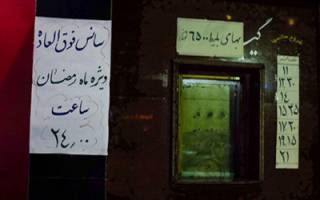 سانس فوق العاده
ویژه ماه رمضان
ساعت
۲۴٫۰۰
بهای بلیط ۶۵۰۰
گیـ
۱۱
۱۲٫۳۰
۱۴
۱۵٫۴۵
۱۷٫۳۰
۱۹٫۱۵
۲۱